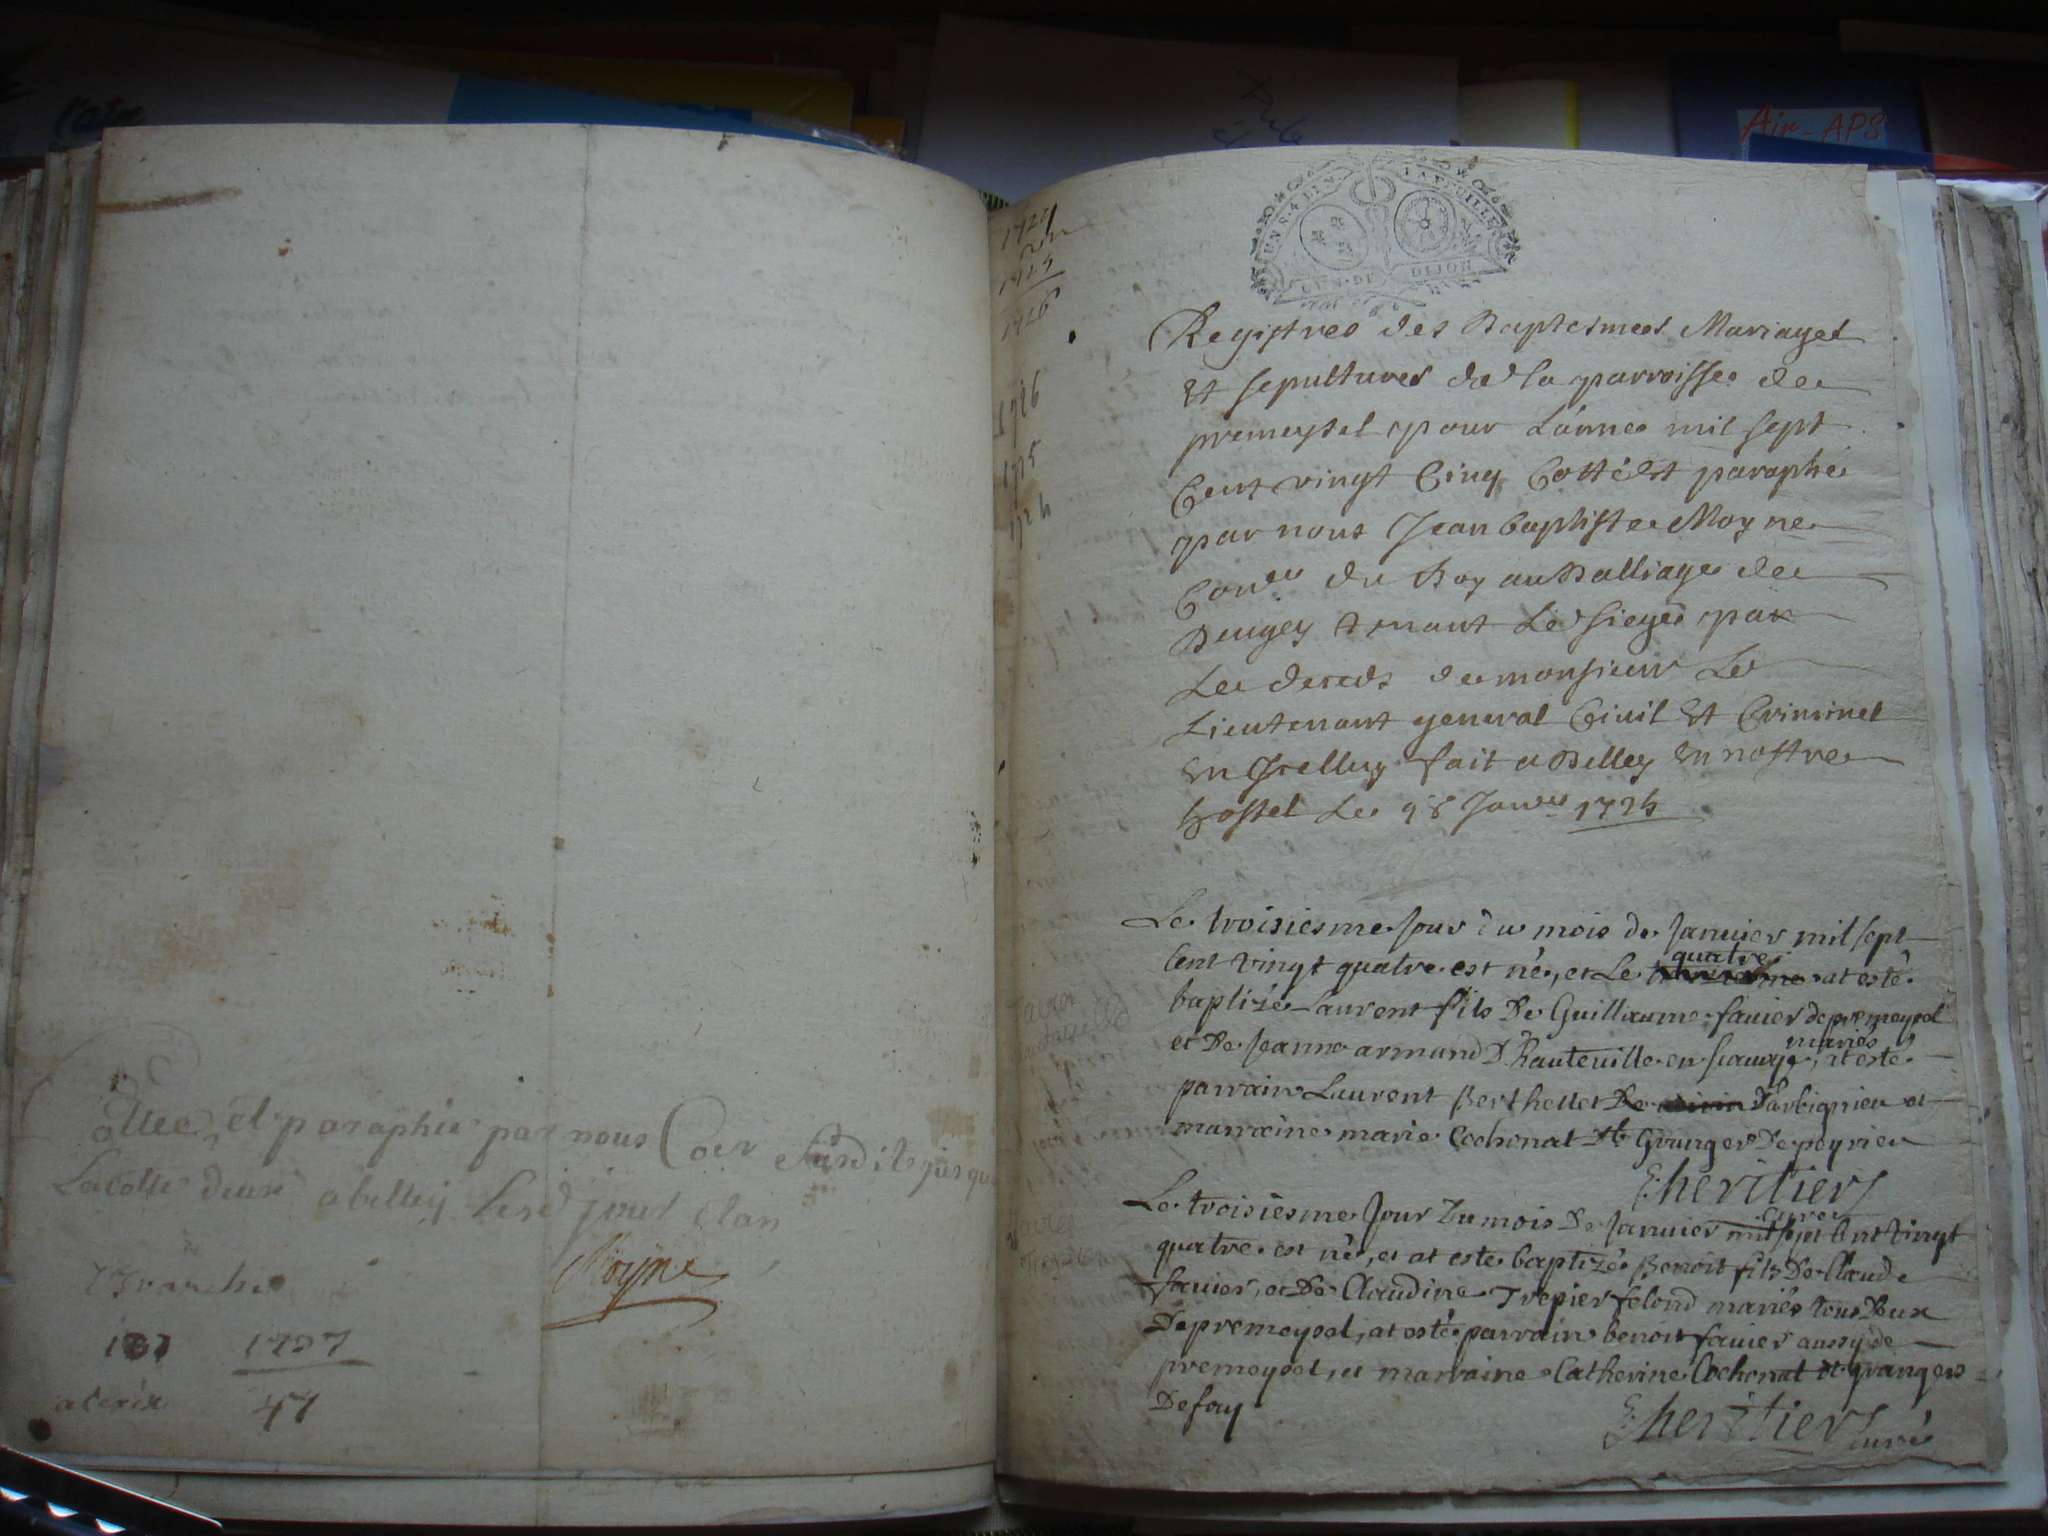 l'ain
Air-APS
ottee et paraphée par nous Coer Susdit jusqu
La cotte deux a belley lesd jour et an
Moyne
1737
47
1724
1725
1726
1726
1725
1724
UN S. 4 LI V. LA FEUILLE
GEN. DE DIJON
Registres des Baptesmes Mariages
Et sepultures de la parroisse de
premeysel pour L'année mil sept
Cent vingt Cinq Cotté Et paraphé
par nous Jean baptiste Moyne
Coner du Roy au Balliage de
Beugey tenant Le siege par
Le deceds de monsieur Le
Lieutenant general Civil Et Criminel
En Iselluy fait a Belley En nostre
hostel Le 28 Janer 1724
Le troisiesme jour du mois de Janvier mil sept
cent vingt quatre est né, et Le quatre at esté
baptizé Laurent fils De Guillaume favier de premeysel
et De Jeanne armand D'hauteville en savoye, mariés at esté
parrain Laurent Berthellet De D'arbignieu et
marraine marie Cochonat dt Granger De peyrieu
Lheritier curé
Le troisiesme Jour Du mois De Janvier mil sept Cent Vingt
quatre est né, et at esté baptizé Benoit fils De Claude
favier, et De Claudine Trepier felond mariés tous Deux
De premeysel, at esté parrain benoit favier aussy de
premeysel, et marraine Catherine Cochonat dt grangers
De fay
Lheritier curé